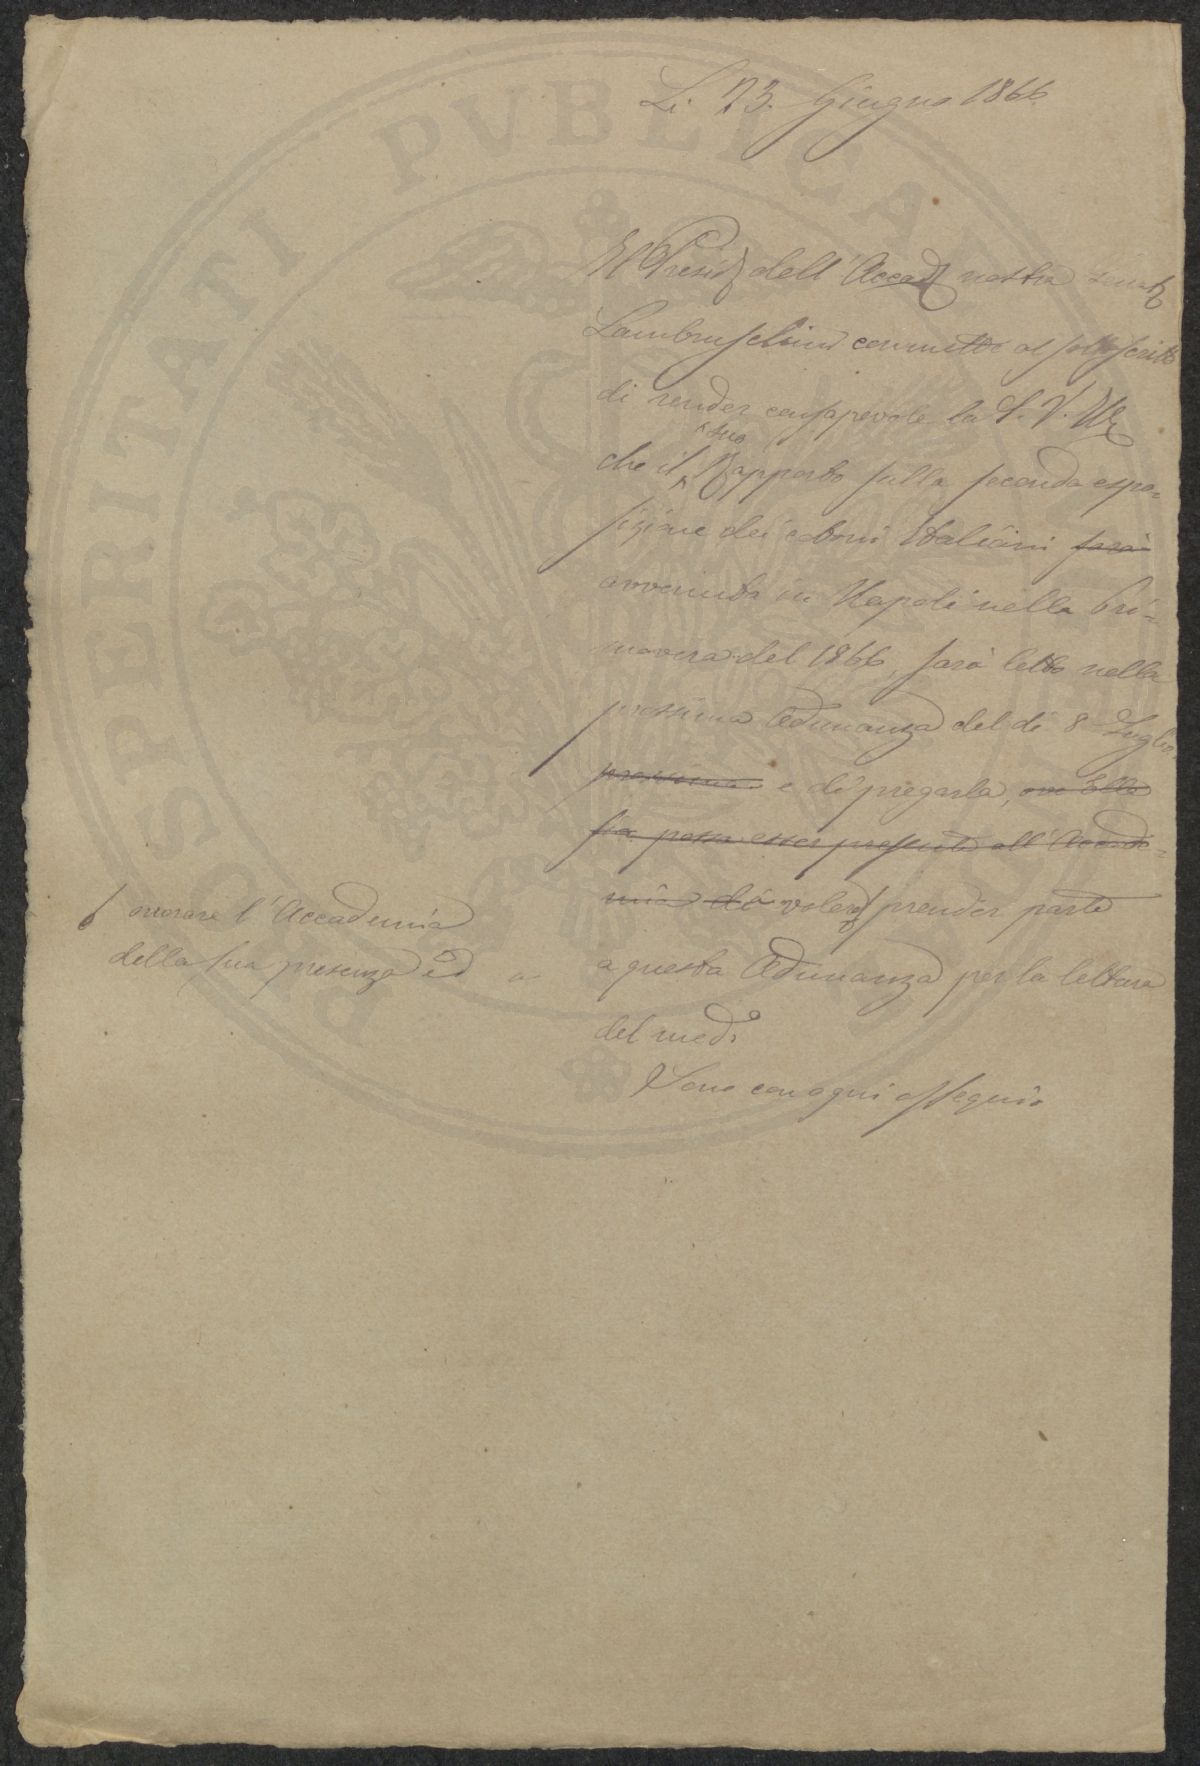 Li. 23. Giugno 1866
Il Presid dell'Accad nostra senat
Lambruschini commette al sottoscritto
di render consapevole la S. V. Ill
che il suo Rapporto sulla seconda espo-
sizione dei cotoni Italiani sarà
avvenuta in Napoli nella Pri-
mavera del 1866, sarà letto nella
prossima Adunanza del dì 8 Luglio
prossimo e di pregarla, ove Ella
sia possa esser presente all'Accade-
mia di voler prender parte
onorare l'Accademia
della sua presenza ed
a questa Adunanza per la lettura
del med.
Sono con ogni ossequio
PROSPERITATI PVBLICAE